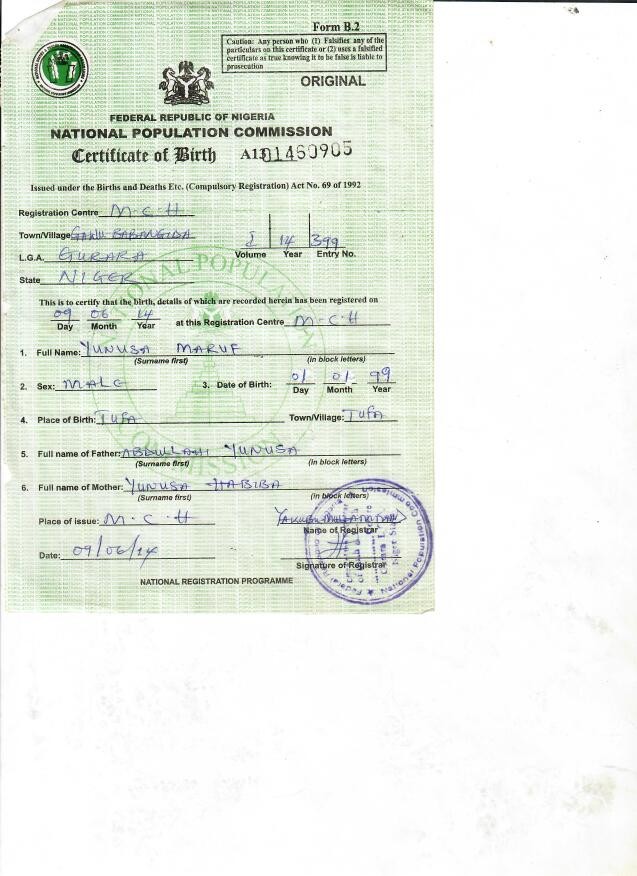 Form B.2
Caution: Any person who (1) Falsifies any of the
particulars on this certificate or (2) uses a falsified
certificate as true knowing it to be false is liable to
prosecution
ORIGINAL
FEDERAL REPUBLIC OF NIGERIA
NATIONAL POPULATION COMMISSION
Certificate of Birth 01460905
Issued under the Births and Deaths Etc. (Compulsory Registration) Act No. 69 of 1992
Registration Centre M-C-H
Town/Village BABANGIDA
L.G.A. GURARA
I 14 399
Volume Year Entry No.
State NIGER
This is to certify that the birth, details of which are recorded herein has been registered on
09 06 14
Day Month Year at this Registration Centre M-C-H
1. Full Name: YUNUSA MARUF
(Surname first) (in block letters)
2. Sex: MALE 3. Date of Birth: 01 01 99
Day Month Year
4. Place of Birth: TUFA Town/Village: TUFA
5. Full name of Father: ABDULLAHI YUNUSA
(Surname first) (in block letters)
6. Full name of Mother: YUNUSA HABIBA
(Surname first) (in block letters)
Place of issue: M-C-H
Name of Registrar
Date: 09/06/14
Signature of Registrar
National Population Commission
NATIONAL REGISTRATION PROGRAMME